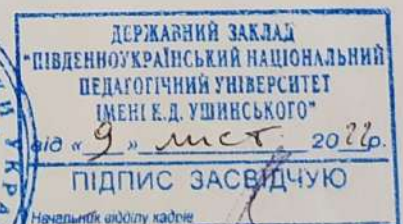 ДЕРЖАВНИЙ ЗАКЛАД
"ПІВДЕННОУКРАЇНСЬКИЙ НАЦІОНАЛЬНИЙ
ПЕДАГОГІЧНИЙ УНІВЕРСИТЕТ
ІМЕНІ К.Д. УШИНСЬКОГО"
від « 9 » лист. 2022р.
ПІДПИС ЗАСВІДЧУЮ
Начальник відділу кадрів